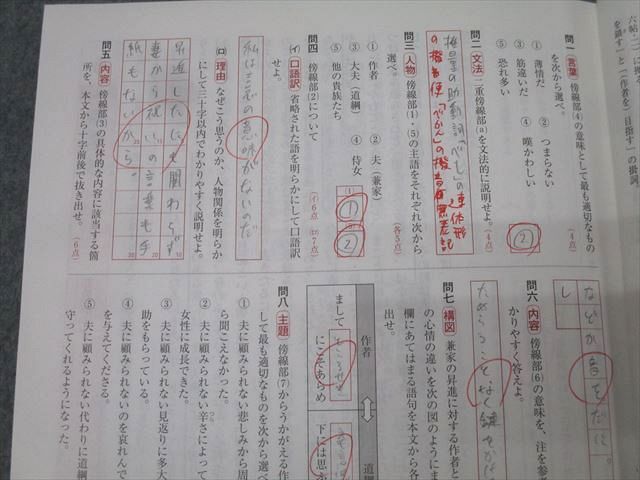 を鎖す」と「(作者を)目指す」の掛詞。
問一 言葉 傍線部(4)の意味として最も適切なもの
を次から選べ。(4点)
① 薄情だ ② つまらない
③ 筋違いだ ④ 嘆かわしい
⑤ 恐れ多い
②
問二 文法 二重傍線部(a)を文法的に説明せよ。(4点)
推量の助動詞「べし」の連体形
の撥音便「べかん」の撥音無表記
問三 人物 傍線部(1)・(5)の主語をそれぞれ次から
選べ。(各5点)
① 作者 ② 夫(兼家)
③ 大夫(道綱) ④ 侍女
⑤ 他の貴族たち
(1) ①
②
問四 傍線部(2)について (イ6点 ロ7点)
(イ) 口語訳 省略された語を明らかにして口語訳
せよ。
私は
意味がないのだ
(ロ) 理由 なぜこう思うのか、人物関係を明らか
にして三十字以内でわかりやすく説明せよ。
昇進したにも関わらず
妻から祝いの言葉も手
紙もないから。
問五 内容 傍線部(3)の具体的な内容に該当する箇
所を、本文から十字前後で抜き出せ。(6点)
などか音をだに。
し
問六 内容 傍線部(6)の意味を、注を参
かりやすく答えよ。
ためらうことなく鍵をか
問七 構図 兼家の昇進に対する作者と
の心情の違いを次の図のように
欄にあてはまる語句を本文から各
出せ。
作者
まして
にこそあらめ
道綱
下には思
問八 主題 傍線部(7)からうかがえる作
して最も適切なものを次から選べ
① 夫に顧みられない悲しみから周
ら聞こえなかった。
② 夫に顧みられない辛さによって
女性に成長できた。
③ 夫に顧みられない見返りに多大
助をもらっている。
④ 夫に顧みられないのを哀れんで
を与えてくださる。
⑤ 夫に顧みられない代わりに道綱
守ってくれるようになった。